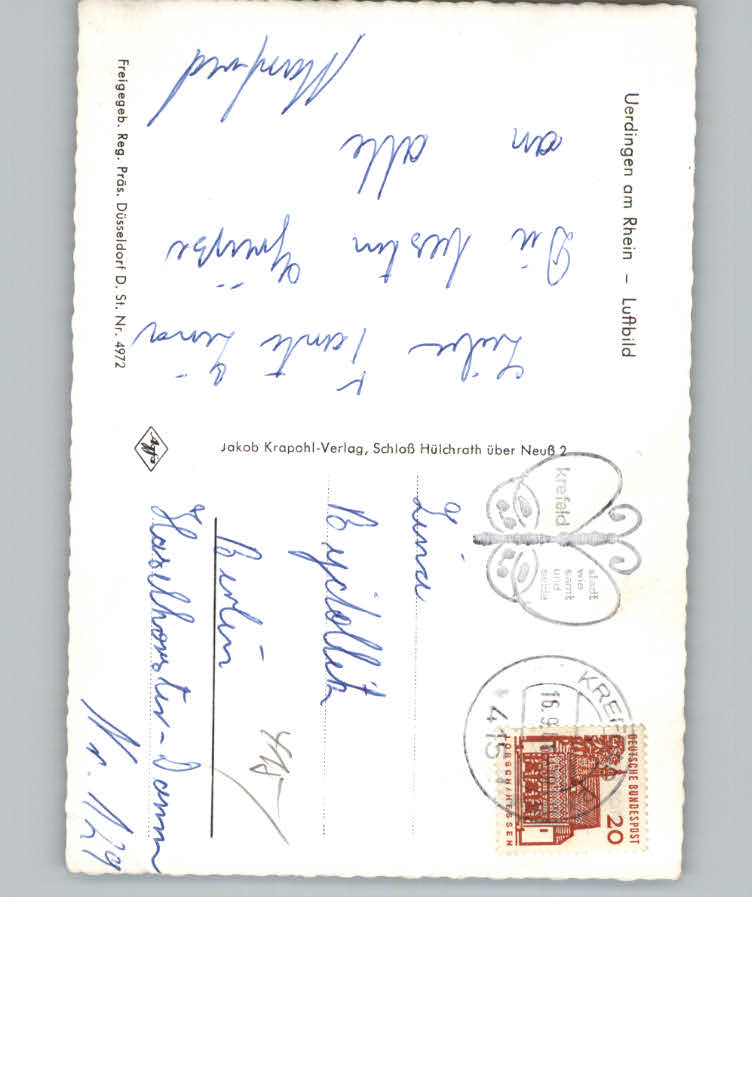 Uerdingen am Rhein – Luftbild
Liebe Tante Lina
Die besten Grüße
an alle
Manfred
Freigegeb. Reg. Präs. Düsseldorf D. St. Nr. 4972
Jakob Krapohl-Verlag, Schloß Hülchrath über Neuß 2
Agfa
krefeld
stadt
wie
samt
und
seide
KREFELD
16.9.
415
DEUTSCHE BUNDESPOST
20
LORSCH/HESSEN
Lina
Berlin
Haselhorster-Damm
Nr. 129